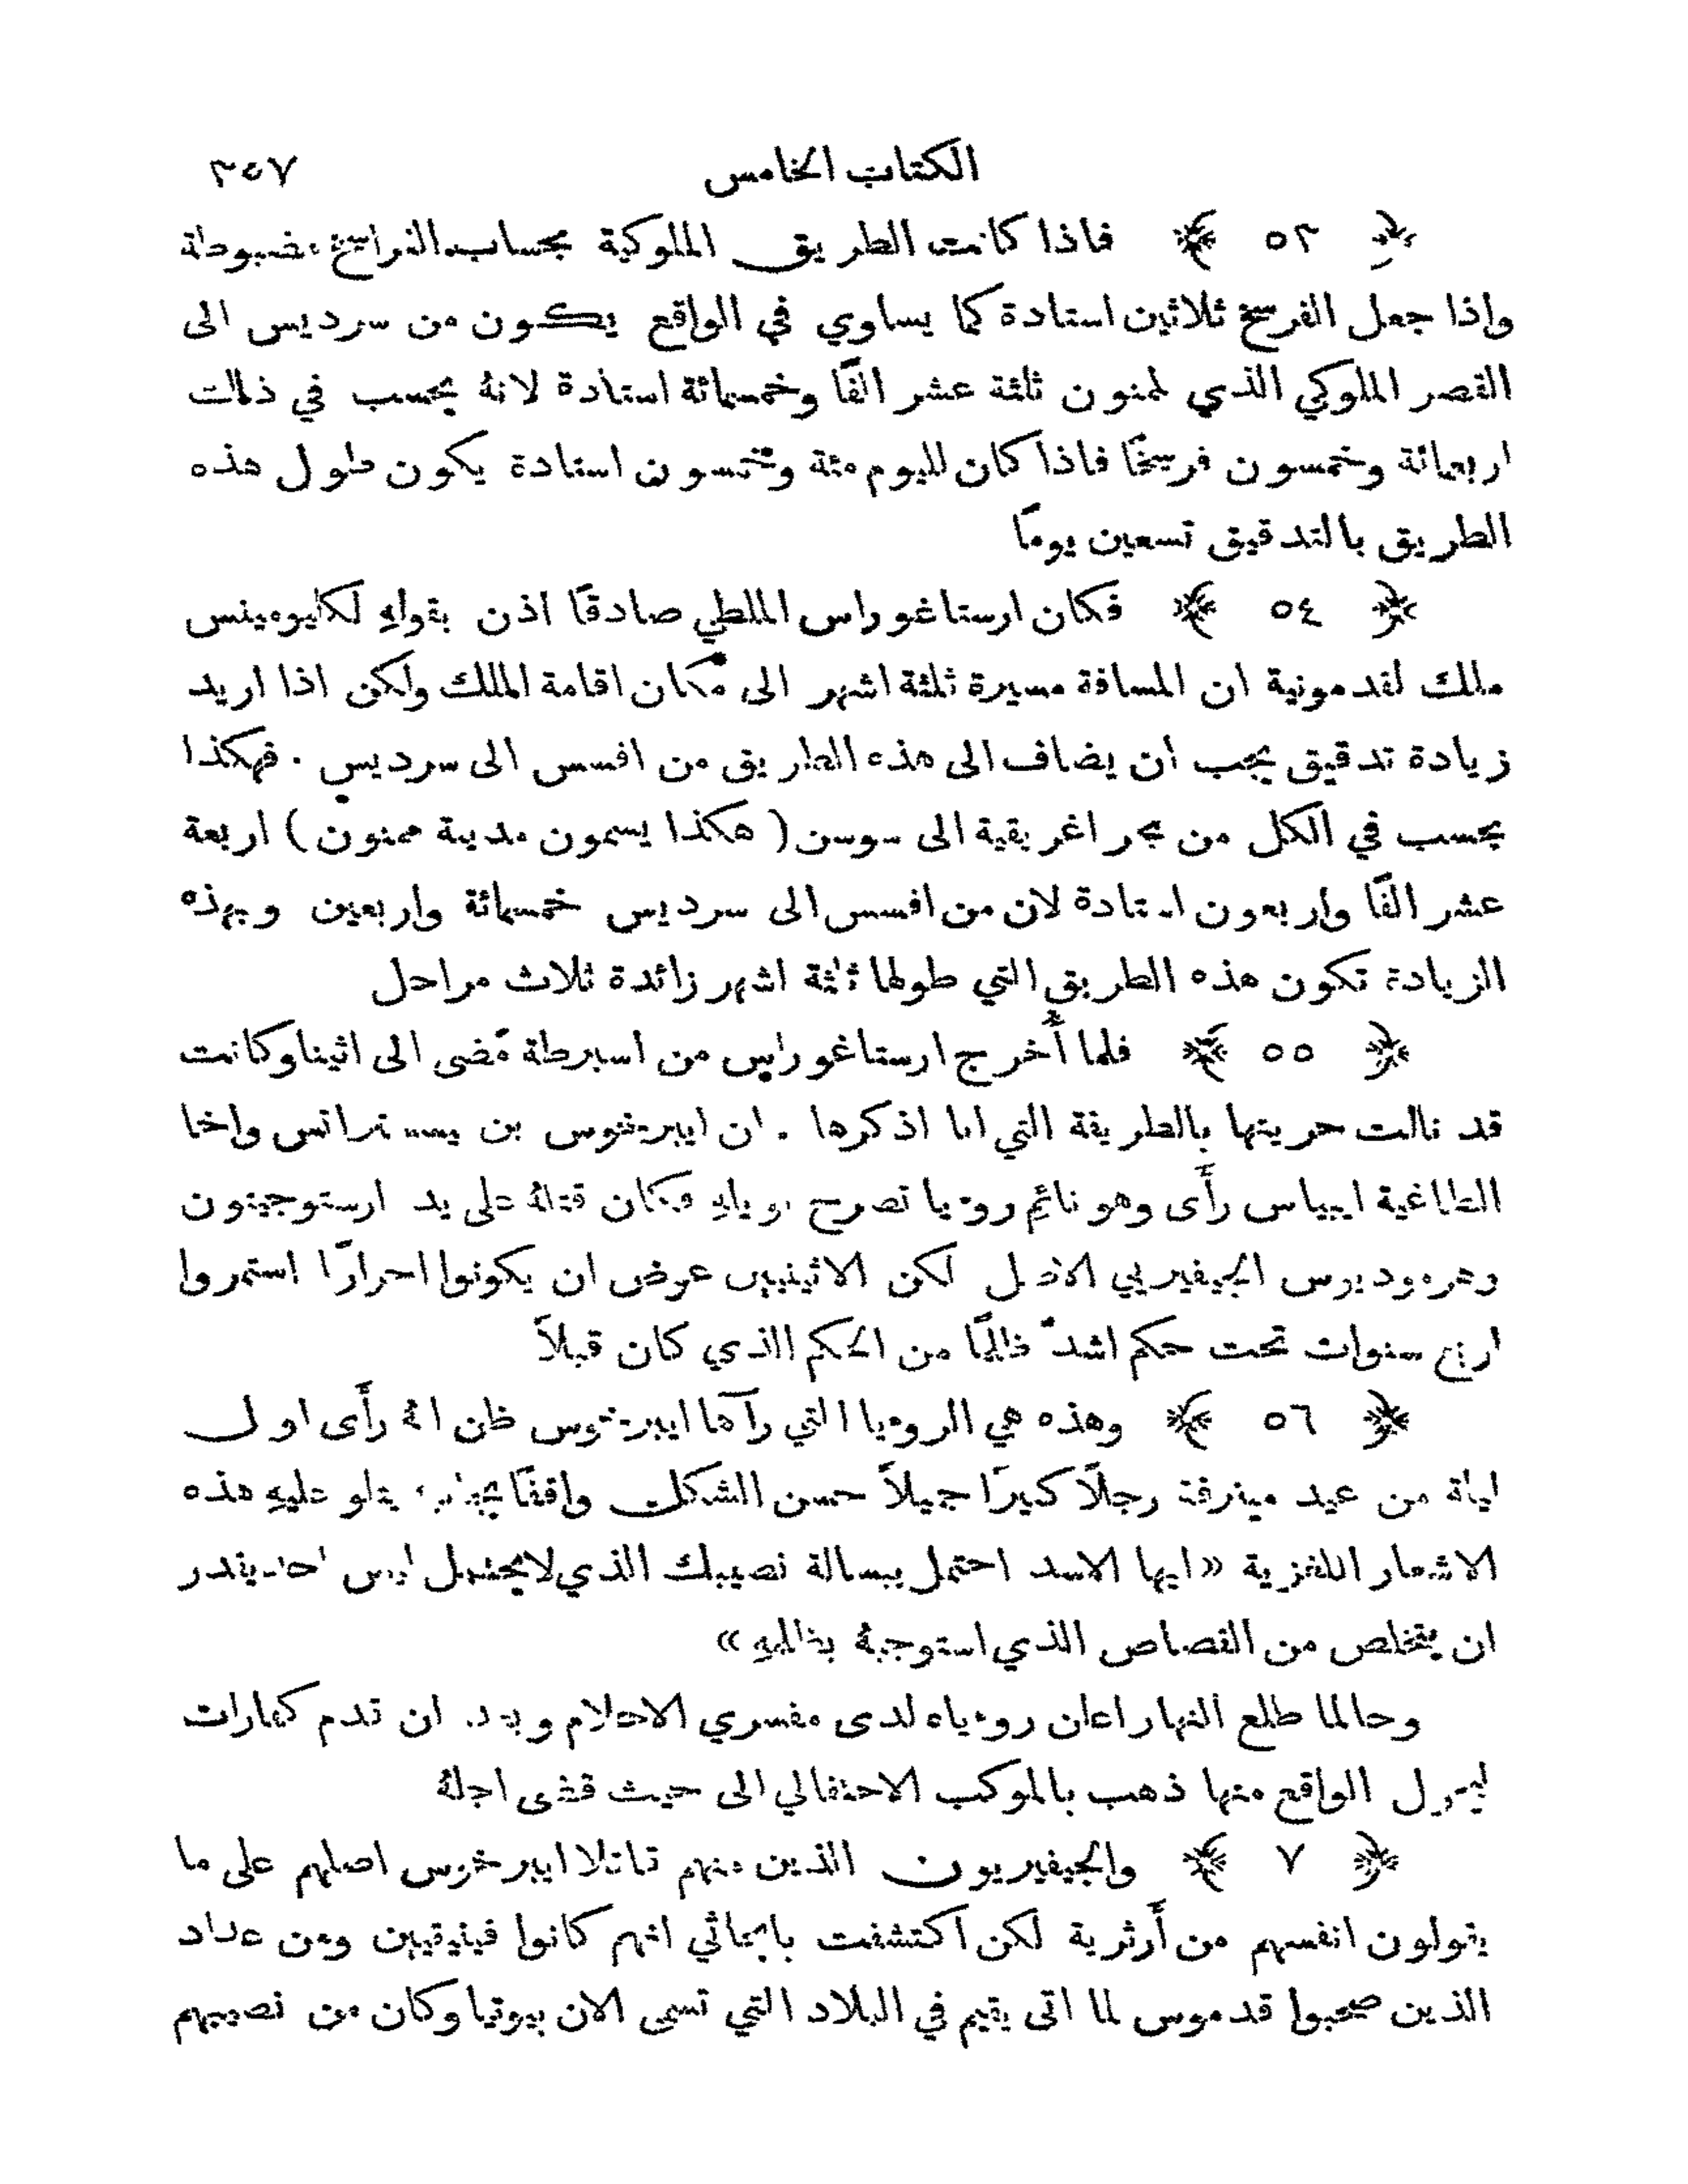 الكتاب الخامس ٣٥٧
﴿ ٥٣ ﴾ فاذا كانت الطريق الملوكية بحساب الفراسخ مضبوطة
واذا جعل الفرسخ ثلاثين استادة كما يساوي في الواقع يكون من سرديس الى
القصر الملوكي الذي لمنون ثلثة عشر الفًا وخمسمائة استادة لانهُ يحسب في ذلك
اربعمائة وخمسون فرسخًا فاذا كان لليوم مئة وخمسون استادة يكون طول هذه
الطريق بالتدقيق تسعين يومًا
﴿ ٥٤ ﴾ فكان ارستاغوراس المللطي صادقًا اذن بقولهِ لكليومينس
ملك لقدمونية ان المسافة مسيرة ثلثة اشهر الى مكان اقامة الملك ولكن اذا اريد
زيادة تدقيق يجب ان يضاف الى هذه الطريق من افسس الى سرديس . فهكذا
يحسب في الكل من بحر اغريقية الى سوسن ( هكذا يسمون مدينة ممنون ) اربعة
عشر الفًا واربعون استادة لان من افسس الى سرديس خمسمائة واربعين وبهذه
الزيادة تكون هذه الطريق التي طولها ثلثة اشهر زائدة ثلاث مراحل
﴿ ٥٥ ﴾ فلما أُخرج ارستاغوراس من اسبرطة مضى الى اثينا وكانت
قد نالت حريتها بالطريقة التي انا اذكرها . ان ايبرخوس بن بيسستراتس واخا
الطاغية ايبياس رأَى وهو نائم روءيا تصرح بوياهِ فكان قتلهُ على يد ارستوجيتون
وهرموديوس الجيفيريي الاصل لكن الاثينيين عوض ان يكونوا احرارًا استمروا
اربع سنوات تحت حكم اشدّ ظلمًا من الحكم الذي كان قبلاً
﴿ ٥٦ ﴾ وهذه هي الروءيا التي رآها ايبرخوس ظن انهُ رأَى اول
ليلة من عيد مينرفة رجلًا كبيرًا جميلاً حسن الشكل واقفًا بجانبهِ يتلو عليهِ هذه
الاشعار اللغزية «ايها الاسد احتمل ببسالة نصيبك الذي لا يحتمل ليس احد يقدر
ان يتخلص من القصاص الذي استوجبهُ بظلمهِ»
وحالما طلع النهار اعلن روءياه لدى مفسري الاحلام وبعد ان قدم كفارات
ليحول الواقع منها ذهب بالموكب الاحتفالي الى حيث قضى اجلهُ
﴿ ٧ ﴾ والجيفيريون الذين منهم قاتلا ايبرخوس اصلهم على ما
يقولون انفسهم من أَرثرية لكن اكتشفت بابحاثي انهم كانوا فينيقيين ومن عداد
الذين صحبوا قدموس لما اتى يقيم في البلاد التي تسمى الان بيوتيا وكان من نصيبهم